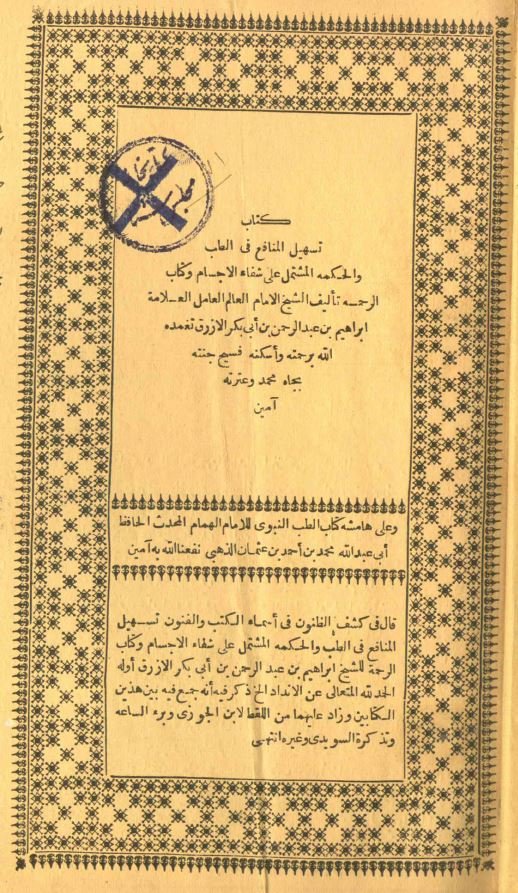 كتاب
تسهيل المنافع فى الطب
والحكمه المشتمل على شفاء الاجسام وكتاب
الرحمه تأليف الشيخ الامام العالم العامل العلامة
ابراهيم بن عبد الرحمن بن أبى بكر الازرق تغمده
الله برحمته وأسكنه فسيح جنته
بجاه محمد وعترته
آمين
وعلى هامشه كتاب الطب النبوى للامام الهمام المحدث الحافظ
أبى عبد الله محمد بن أحمد بن عثمان الذهبى نفعنا الله به آمين
قال فى كشف الظنون فى أسماء الكتب والفنون تسهيل
المنافع فى الطب والحكمه المشتمل على شفاء الاجسام وكتاب
الرحمة للشيخ ابراهيم بن عبد الرحمن بن أبى بكر الازرق أوله
الحمد لله المتعالى عن الانداد الخ ذكر فيه أنه جمع فيه بين هذين
الكتابين وزاد عليهما من اللقط لابن الجوزى وبرء الساعه
وتذكرة السويدى وغيره انتهى